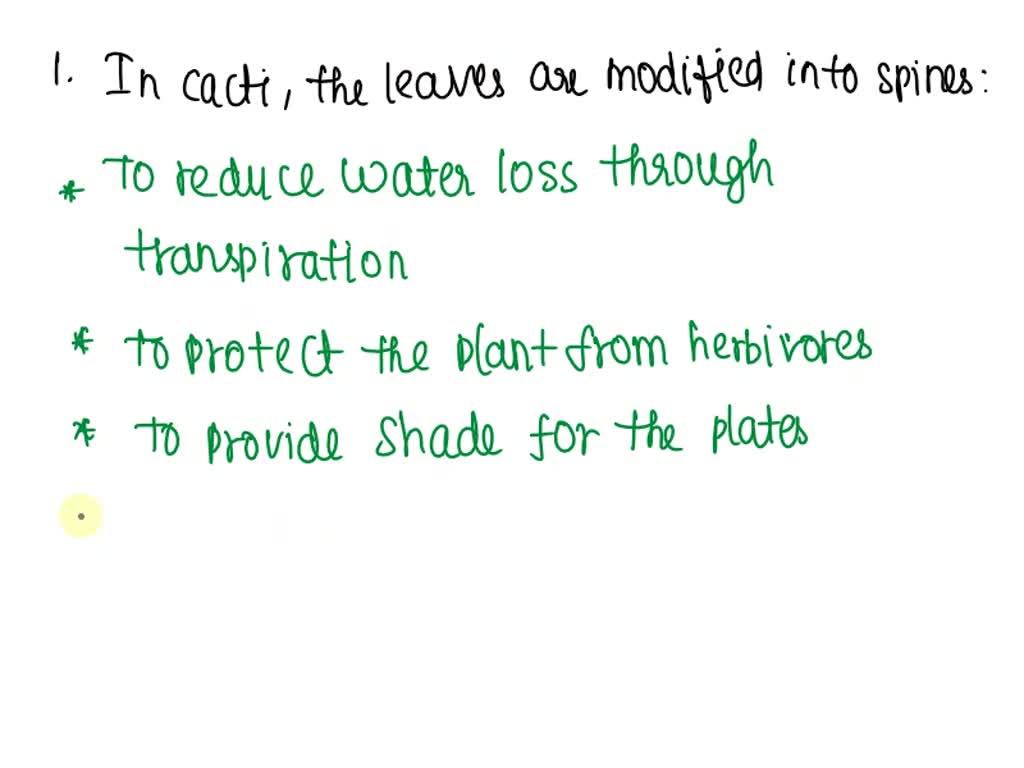 1. In cacti, the leaves are modified into spines:
* To reduce water loss through
transpiration
* To protect the plant from herbivores
* To provide shade for the plates